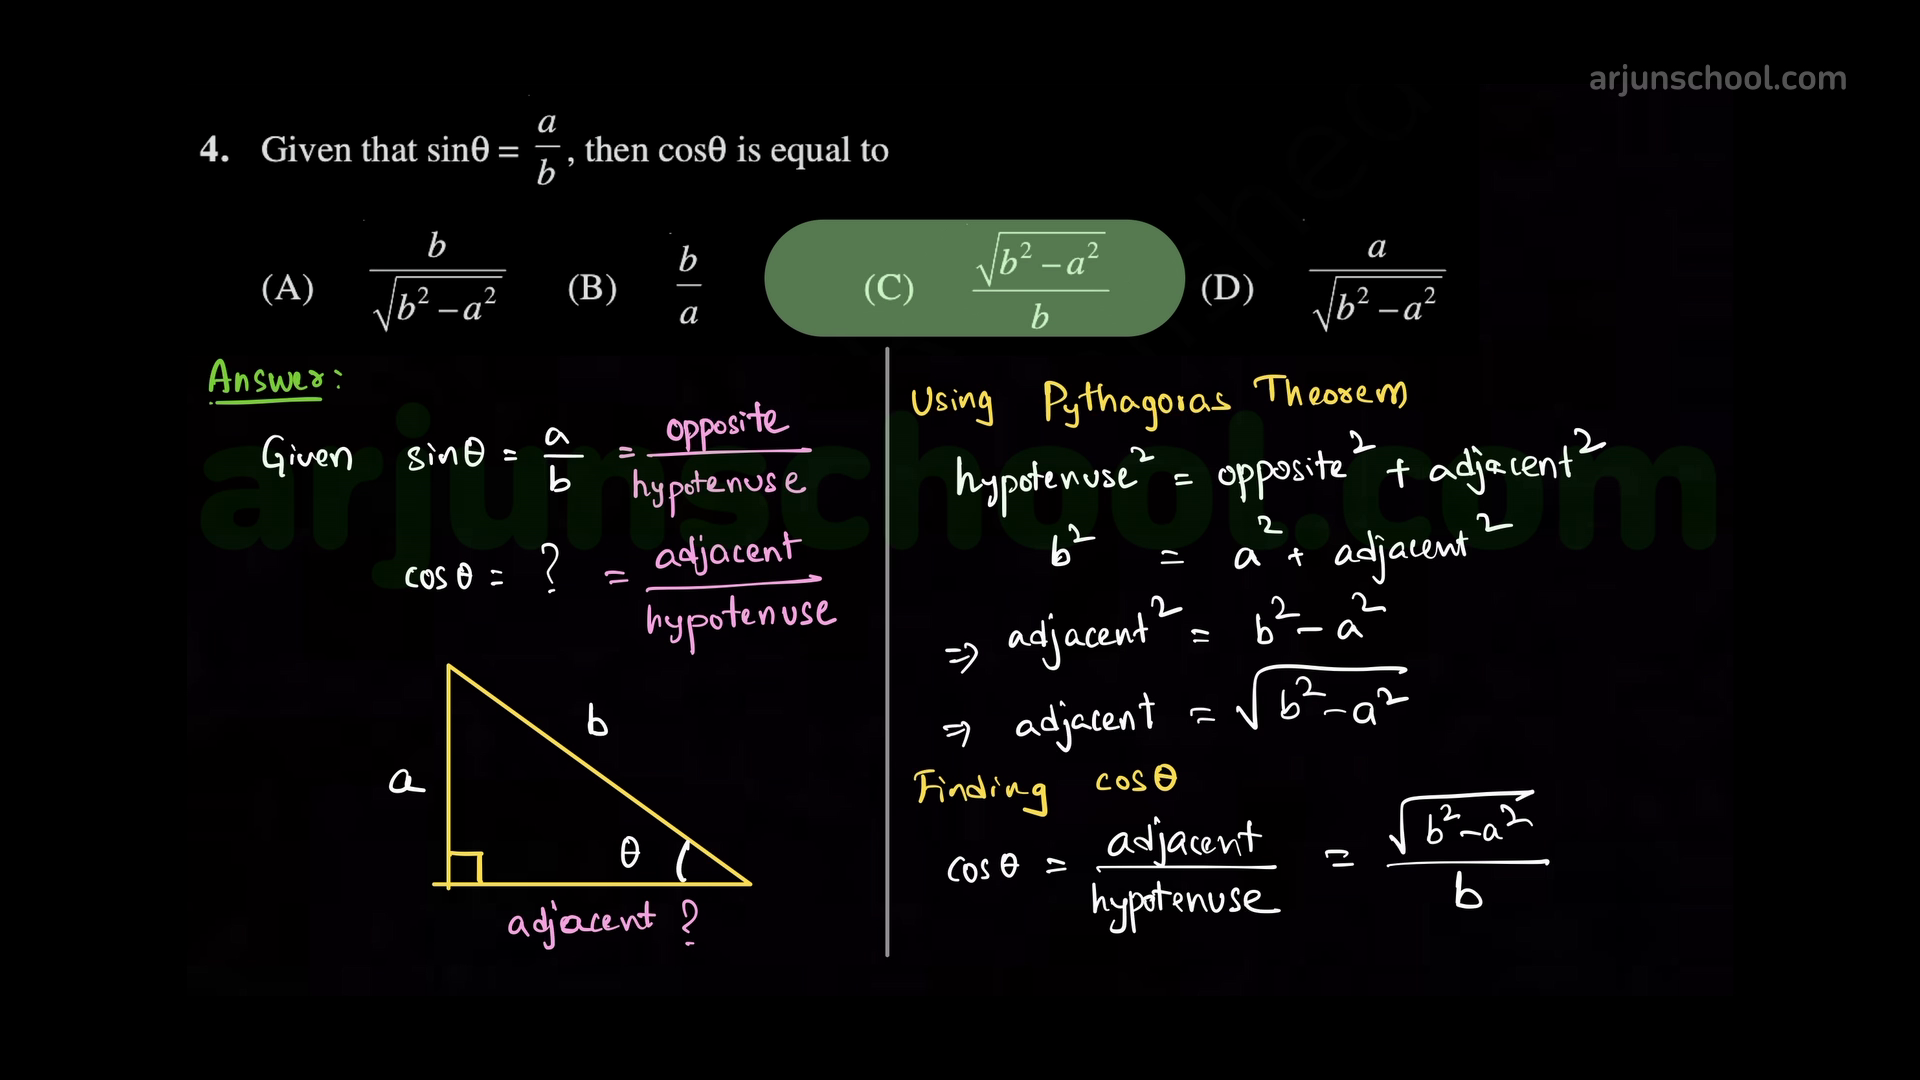 arjunschool.com
4. Given that sinθ = a/b, then cosθ is equal to
(A) b/√(b² – a²) (B) b/a (C) √(b² – a²)/b (D) a/√(b² – a²)
Answer:
Given sinθ = a/b = opposite/hypotenuse
cosθ = ? = adjacent/hypotenuse
b
a
θ
adjacent ?
Using Pythagoras Theorem
hypotenuse² = opposite² + adjacent²
b² = a² + adjacent²
⇒ adjacent² = b² – a²
⇒ adjacent = √(b² – a²)
Finding cosθ
cosθ = adjacent/hypotenuse = √(b² – a²)/b
arjunschool.com